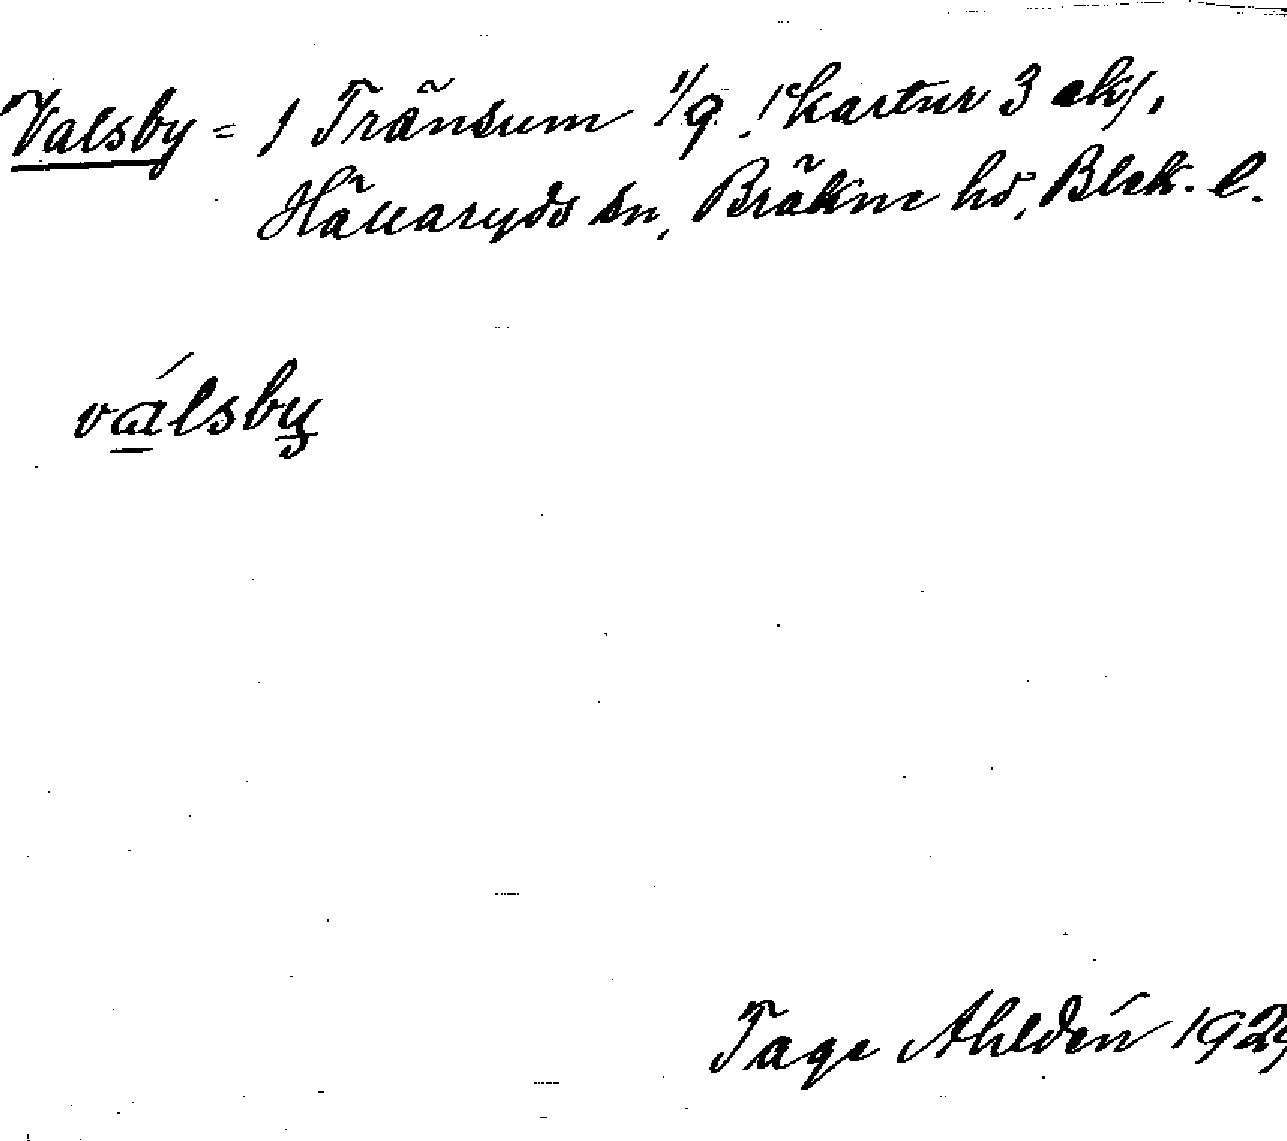 Valsby = 1 Tränsum 1/9 skattar 3 ekf,
Hällaryds sn, Bräkne hd, Blek. l.
válsby
Tage Ahldén 1929